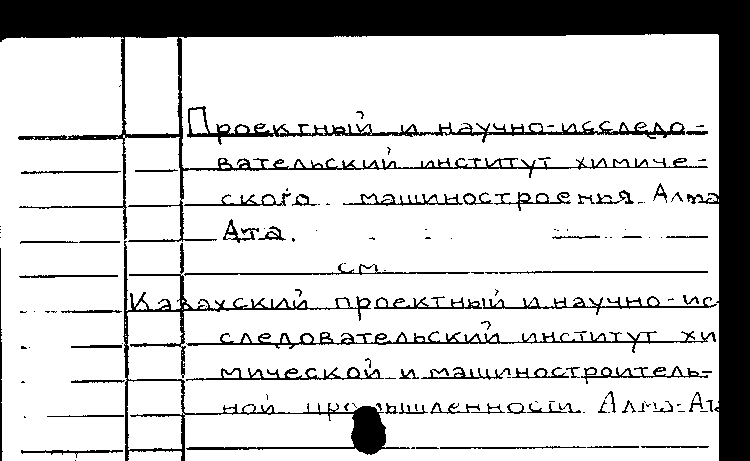 Проектный и научно-исследо-
вательский институт химиче-
ского машиностроения Алма
Ата.
см.
Казахский проектный и научно-ис
следовательский институт хи
мической и машиностроитель-
ной промышленности. Алма-Ата